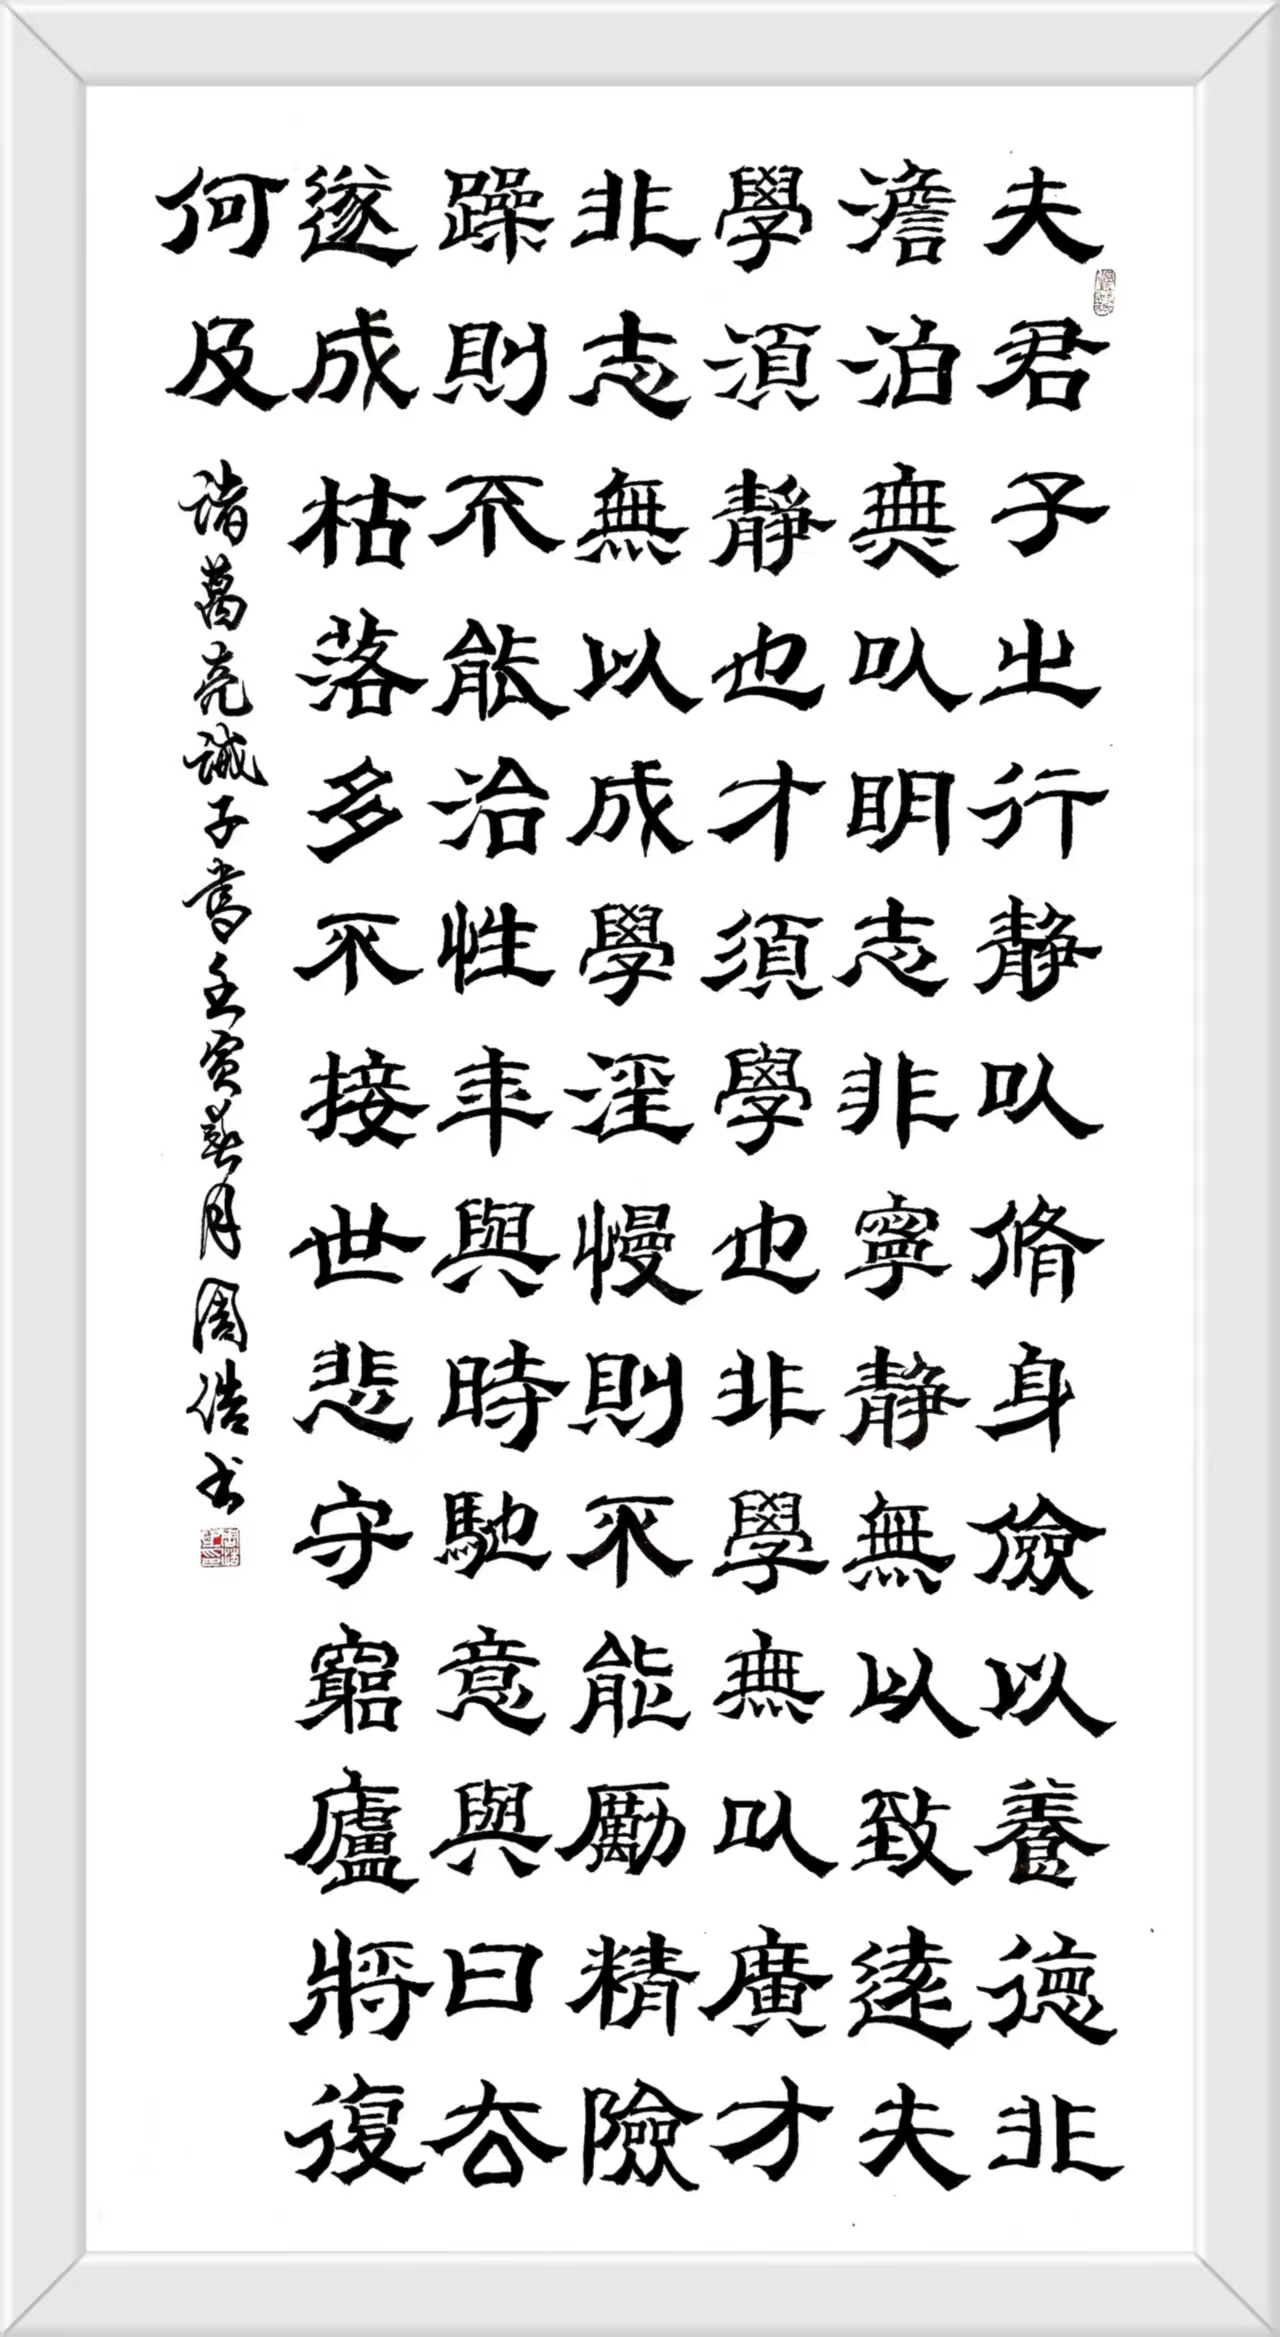 夫君子之行静以脩身儉以養德非
澹泊無以明志非寧静無以致遠夫
學須靜也才須學也非學無以廣才
非志無以成學淫慢則不能勵精險
躁則不能治性年與時馳意與日去
遂成枯落多不接世悲守窮廬將復
何及
諸葛亮誡子書壬寅春月周浩书